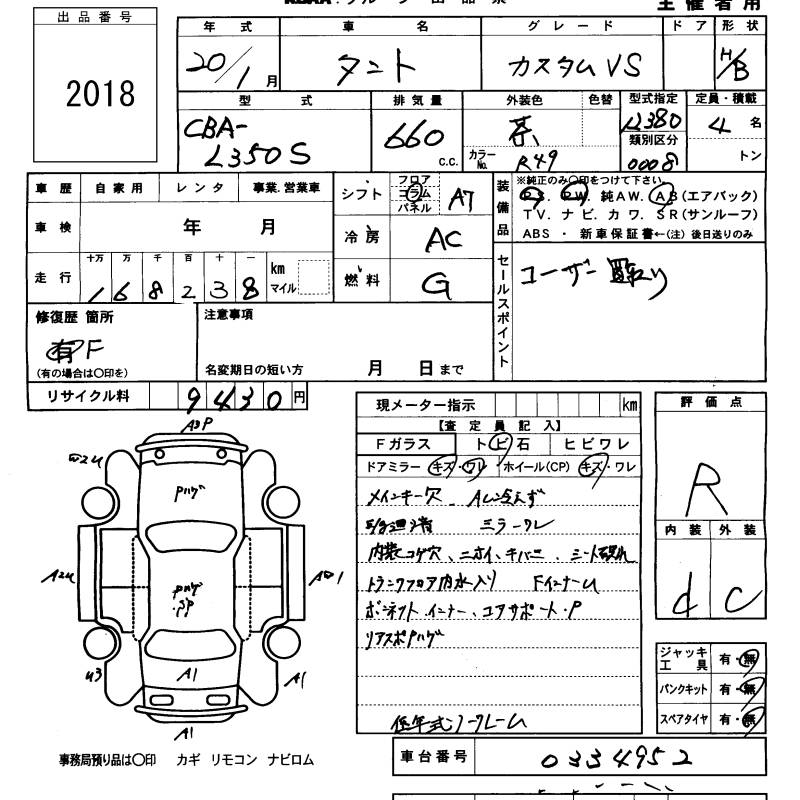 主催者用
出品番号
2018
年式 車名 グレード ドア 形状
20/1月 タント カスタムVS H/B
型式 排気量 外装色 色替 型式指定 定員・積載
CBA-L350S 660 c.c. 茶 12380 4名
カラーNo. R49 類別区分 0008 トン
車歴 自家用 レンタ 事業.営業車
シフト フロア コラム パネル AT
装備品 ※純正のみ〇印をつけて下さい
PS. PW. 純AW. AB(エアバック)
TV. ナビ. カワ. SR(サンルーフ)
ABS ・ 新車保証書←(注) 後日送りのみ
車検 年 月
冷房 AC
走行 十万 万 千 百 十 一 km マイル
168238
燃料 G
セールスポイント
ユーザー買取り
修復歴 箇所
有 F
(有の場合は〇印を)
注意事項
名変期日の短い方 月 日まで
リサイクル料 9430円
現メーター指示 km
【査定員記入】
Fガラス トビ石 ヒビワレ
ドアミラー キズ・ワレ ホイール(CP) キズ・ワレ
メインキー穴 AC冷えず
ミラーワレ
内装コゲ穴、ニオイ、キバミ シート破れ
トランクフロア内水入り FインナーU
ボンネットインナー、コアサポート・P
リアスポPハゲ
低年式ノークレーム
評価点
R
内装 外装
d C
ジャッキ工具 有・無
パンクキット 有・無
スペアタイヤ 有・無
W2U
Pハゲ
A2U
Pハゲ
・SP
U3
A1
A1
A1
事務局預り品は〇印 カギ リモコン ナビロム
車台番号 0334952